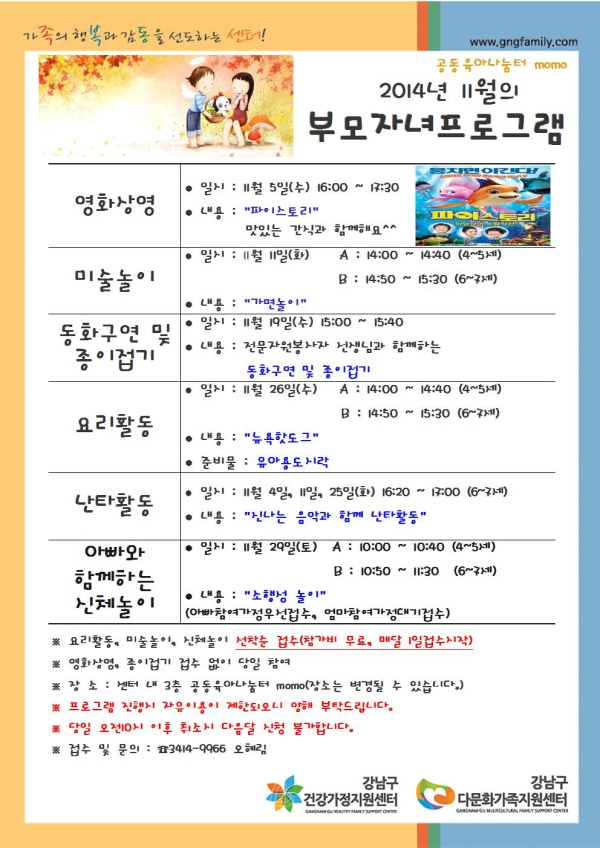 가족의 행복과 감동을 선도하는 센터!
www.gngfamily.com
공동육아나눔터 momo
2014년 11월의
부모자녀프로그램
영화상영
● 일시 : 11월 5일(수) 16:00 ~ 17:30
● 내용 : "파이스토리"
맛있는 간식과 함께해요^^
뭉치면 이긴다!
파이스토리
미술놀이
● 일시 : 11월 11일(화) A : 14:00 ~ 14:40 (4~5세)
B : 14:50 ~ 15:30 (6~7세)
● 내용 : "가면놀이"
동화구연 및
종이접기
● 일시 : 11월 19일(수) 15:00 ~ 15:40
● 내용 : 전문자원봉사자 선생님과 함께하는
동화구연 및 종이접기
요리활동
● 일시 : 11월 26일(수) A : 14:00 ~ 14:40 (4~5세)
B : 14:50 ~ 15:30 (6~7세)
● 내용 : "뉴욕핫도그"
● 준비물 : 유아용도시락
난타활동
● 일시 : 11월 4일, 11일, 25일(화) 16:20 ~ 17:00 (6~7세)
● 내용 : "신나는 음악과 함께 난타활동"
아빠와
함께하는
신체놀이
● 일시 : 11월 29일(토) A : 10:00 ~ 10:40 (4~5세)
B : 10:50 ~ 11:30 (6~7세)
● 내용 : "소행성 놀이"
(아빠참여가정우선접수, 엄마참여가정대기접수)
※ 요리활동, 미술놀이, 신체놀이 선착순 접수(참가비 무료, 매달 1일접수시작)
※ 영화상영, 종이접기 접수 없이 당일 참여
※ 장 소 : 센터 내 3층 공동육아나눔터 momo(장소는 변경될 수 있습니다.)
※ 프로그램 진행시 자유이용이 제한되오니 양해 부탁드립니다.
※ 당일 오전10시 이후 취소시 다음달 신청 불가합니다.
※ 접수 및 문의 : ☎3414-9966 오혜림
강남구
건강가정지원센터
GANGNAM-GU HEALTHY FAMILY SUPPORT CENTER
강남구
다문화가족지원센터
GANGNAM-GU MULTICULTURAL FAMILY SUPPORT CENTER